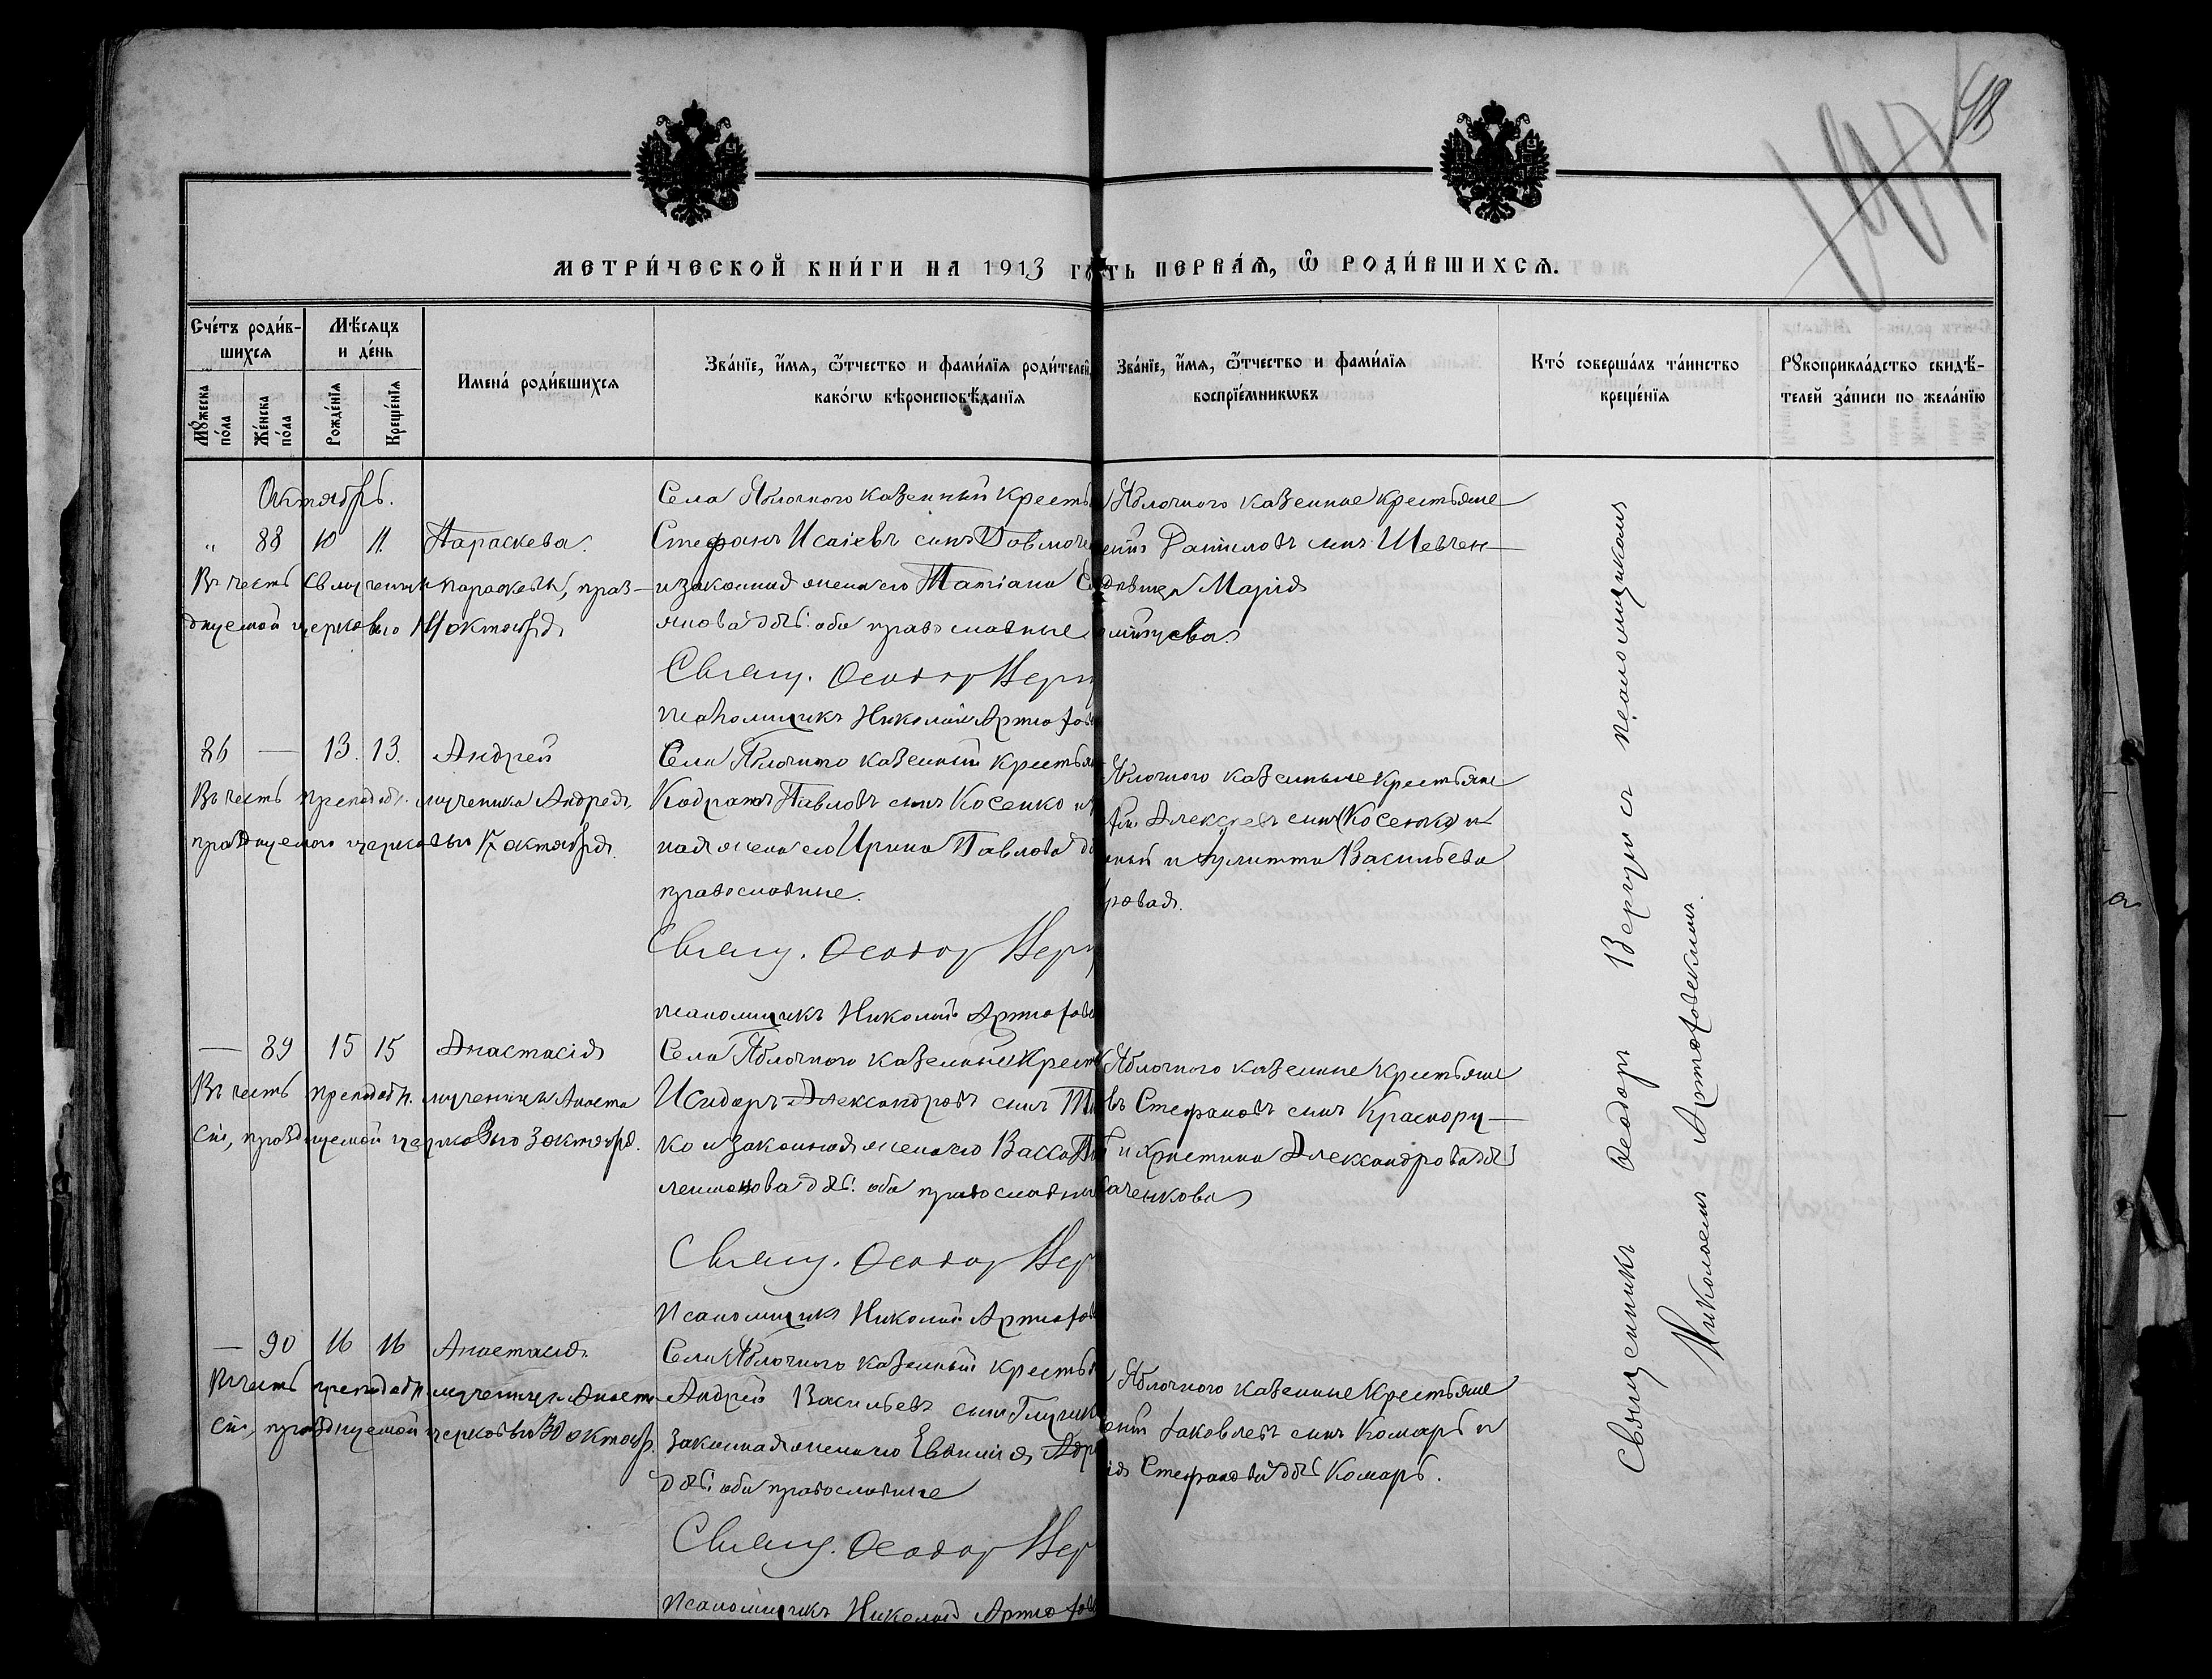 98
МЕТРИ́ЧЕСКОЙ КНИ́ГИ НА 1913 ГО
ТЬ ПЕРВА́Ѧ, Ѽ РОДИ́ВШИХСѦ.
Сче́тъ роди́в-
шихсѧ
Мꙋ́жеска по́ла
Же́нска по́ла
Мѣ́сѧцъ
и де́нь
Рожде́нїѧ
Креще́нїѧ
Имена́ роди́вшихсѧ
Зва́нїе, и҆́мѧ, ѻ҆́тчество и фами́лїѧ роди́телей,
како́гѡ вѣроисповѣ́данїѧ
Зва́нїе, и҆́мѧ, ѻ҆́тчество и фами́лїѧ
воспрїе́мникѡвъ
Кто́ соверша́лъ та́инство
креще́нїѧ
Рꙋкоприкла́дство свидѣ́-
телей за́писи по жела́нїю
Октябрь.
„ 88 10 11. Параскева.
Въ честь св. мученицы Параскевы, праз-
днуемой церковью 14 октября
Села Яблочного казенный крестья
Стефанъ Исаіевъ сынъ
и законная жена его Татіана
дочь: оба православные
Свящ. Ѳеодоръ Вер
псаломщикъ Николай Артюхов
Яблочного казенные крестьяне
Даниловъ сынъ Шевчен—
дѣвица Марія
86 — 13. 13. Андрей
Въ честь преподобн. мученика Андрея,
празднуемого церковью 17 октября.
Села Яблочного казенный крестьян
Кодратъ Павловъ сынъ Косенко и
ная жена его Ирина Павлова
православные.
Свящ. Ѳеодоръ Вер
псаломщикъ Николай Артюхов
Яблочного казенные крестьяне
Алексеевъ сынъ Косенко и
и Улитта Васильева
ровая.
— 89 15 15 Анастасія
Въ честь преподобн. мученицы Анаста
сіи, празднуемой церковью 30 октября.
Села Яблочного казенные крест
Исидоръ Александровъ сынъ
ко и законная жена его Васса
дочь: оба православны
Свящ. Ѳеодоръ Вер
Псаломщикъ Николай Артюхов
Яблочного казенные крестьяне
въ Стефановъ сынъ Краснору—
и Христина Александрова дочь
ченкова
— 90 16 16 Анастасія.
Въ честь преподобн. мученицы Анаста
сіи, празднуемой церковью 30 октябр.
Села Яблочного казенный крестья
Андрей Васильевъ сынъ
законная жена его Евѳимія
дочь: оба православные
Свящ. Ѳеодоръ Вер
Псаломщикъ Николай Артюхов
Яблочного казенные крестьяне
Іаковлевъ сынъ Комарь и
Стефанова дочь Комарь.
Священникъ Ѳеодоръ Вергунъ съ псаломщикомъ
Николаемъ Артюховскимъ.